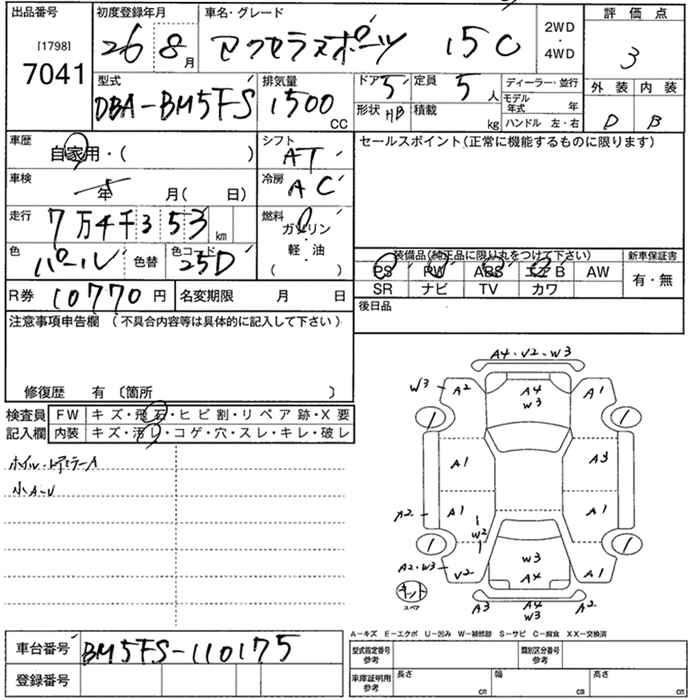 出品番号 [1798] 7041
初度登録年月 26 8月
車名・グレード アクセラスポーツ 15C
2WD・4WD
評価点 3
外装 内装
D B
型式 DBA-BM5FS
排気量 1500 CC
ドア 5 定員 5人
形状 HB 積載 kg
ディーラー・並行
モデル年式 年
ハンドル 左・右
車歴 自家用・( )
シフト AT
車検 年 月( 日)
冷房 AC
走行 7万4千353 km
燃料 ガソリン 軽・油 ( )
色 パール 色替 色コード 25D
R券 10770円 名変期限 月 日
セールスポイント(正常に機能するものに限ります)
装備品(純正品に限り丸をつけて下さい) 新車保証書
PS PW ABS エアB AW 有・無
SR ナビ TV カワ
後日品
注意事項申告欄 (不具合内容等は具体的に記入して下さい)
修復歴 有 〔箇所 〕
検査員記入欄
FW キズ・飛石・ヒビ割・リペア跡・X要
内装 キズ・汚レ・コゲ・穴・スレ・キレ・破レ
小A-U
A4・V2・W3
W3 A2 A4 W3 A1
1 1
A1 A3
A2 A1 W2 A1
1 1
A2・W3 V2 W3 A4 A1
キット スペア
A3 A4 W3 A2
A-キズ E-エクボ U-凹み W-補修跡 S-サビ C-腐食 XX-交換済
車台番号 BM5FS-110175
登録番号
型式指定番号 参考 類別区分番号 参考
車庫証明用 参考 長さ cm 幅 cm 高さ cm